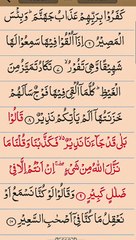 كَفَرُوا۟ بِرَبِّهِمْ عَذَابُ جَهَنَّمَ ۖ وَبِئْسَ
ٱلْمَصِيرُ ۝ إِذَآ أُلْقُوا۟ فِيهَا سَمِعُوا۟ لَهَا
شَهِيقًا وَهِىَ تَفُورُ ۝ تَكَادُ تَمَيَّزُ مِنَ
ٱلْغَيْظِ ۖ كُلَّمَآ أُلْقِىَ فِيهَا فَوْجٌ سَأَلَهُمْ
خَزَنَتُهَآ أَلَمْ يَأْتِكُمْ نَذِيرٌ ۝ قَالُوا۟
بَلَىٰ قَدْ جَآءَنَا نَذِيرٌ فَكَذَّبْنَا وَقُلْنَا مَا
نَزَّلَ ٱللَّهُ مِن شَىْءٍ إِنْ أَنتُمْ إِلَّا فِى
ضَلَٰلٍ كَبِيرٍ ۝ وَقَالُوا۟ لَوْ كُنَّا نَسْمَعُ أَوْ
نَعْقِلُ مَا كُنَّا فِىٓ أَصْحَٰبِ ٱلسَّعِيرِ ۝